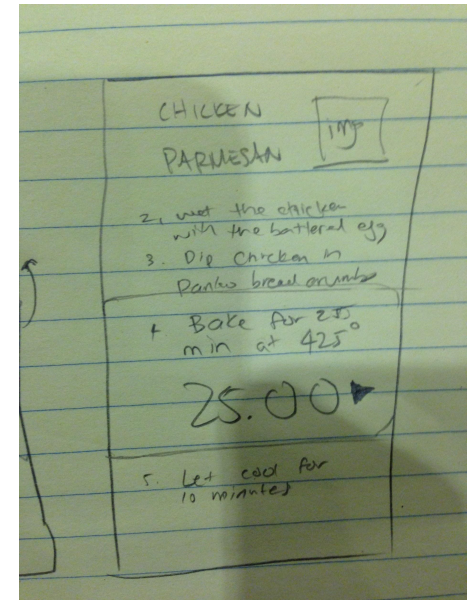 CHICKEN
img
PARMESAN
2. wet the chicken
with the battered egg
3. Dip Chicken in
Panko bread crumbs
4 Bake for 25
min at 425°
25.00
5. Let cool for
10 minutes